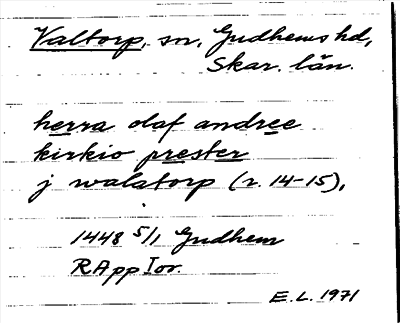 Valtorp, sn, Gudhems hd,
Skar. län.
herra olaf andree
kirkio prester
j walatorp (r. 14-15),
1448 5/1 Gudhem
RApp Ior.
E.L. 1971